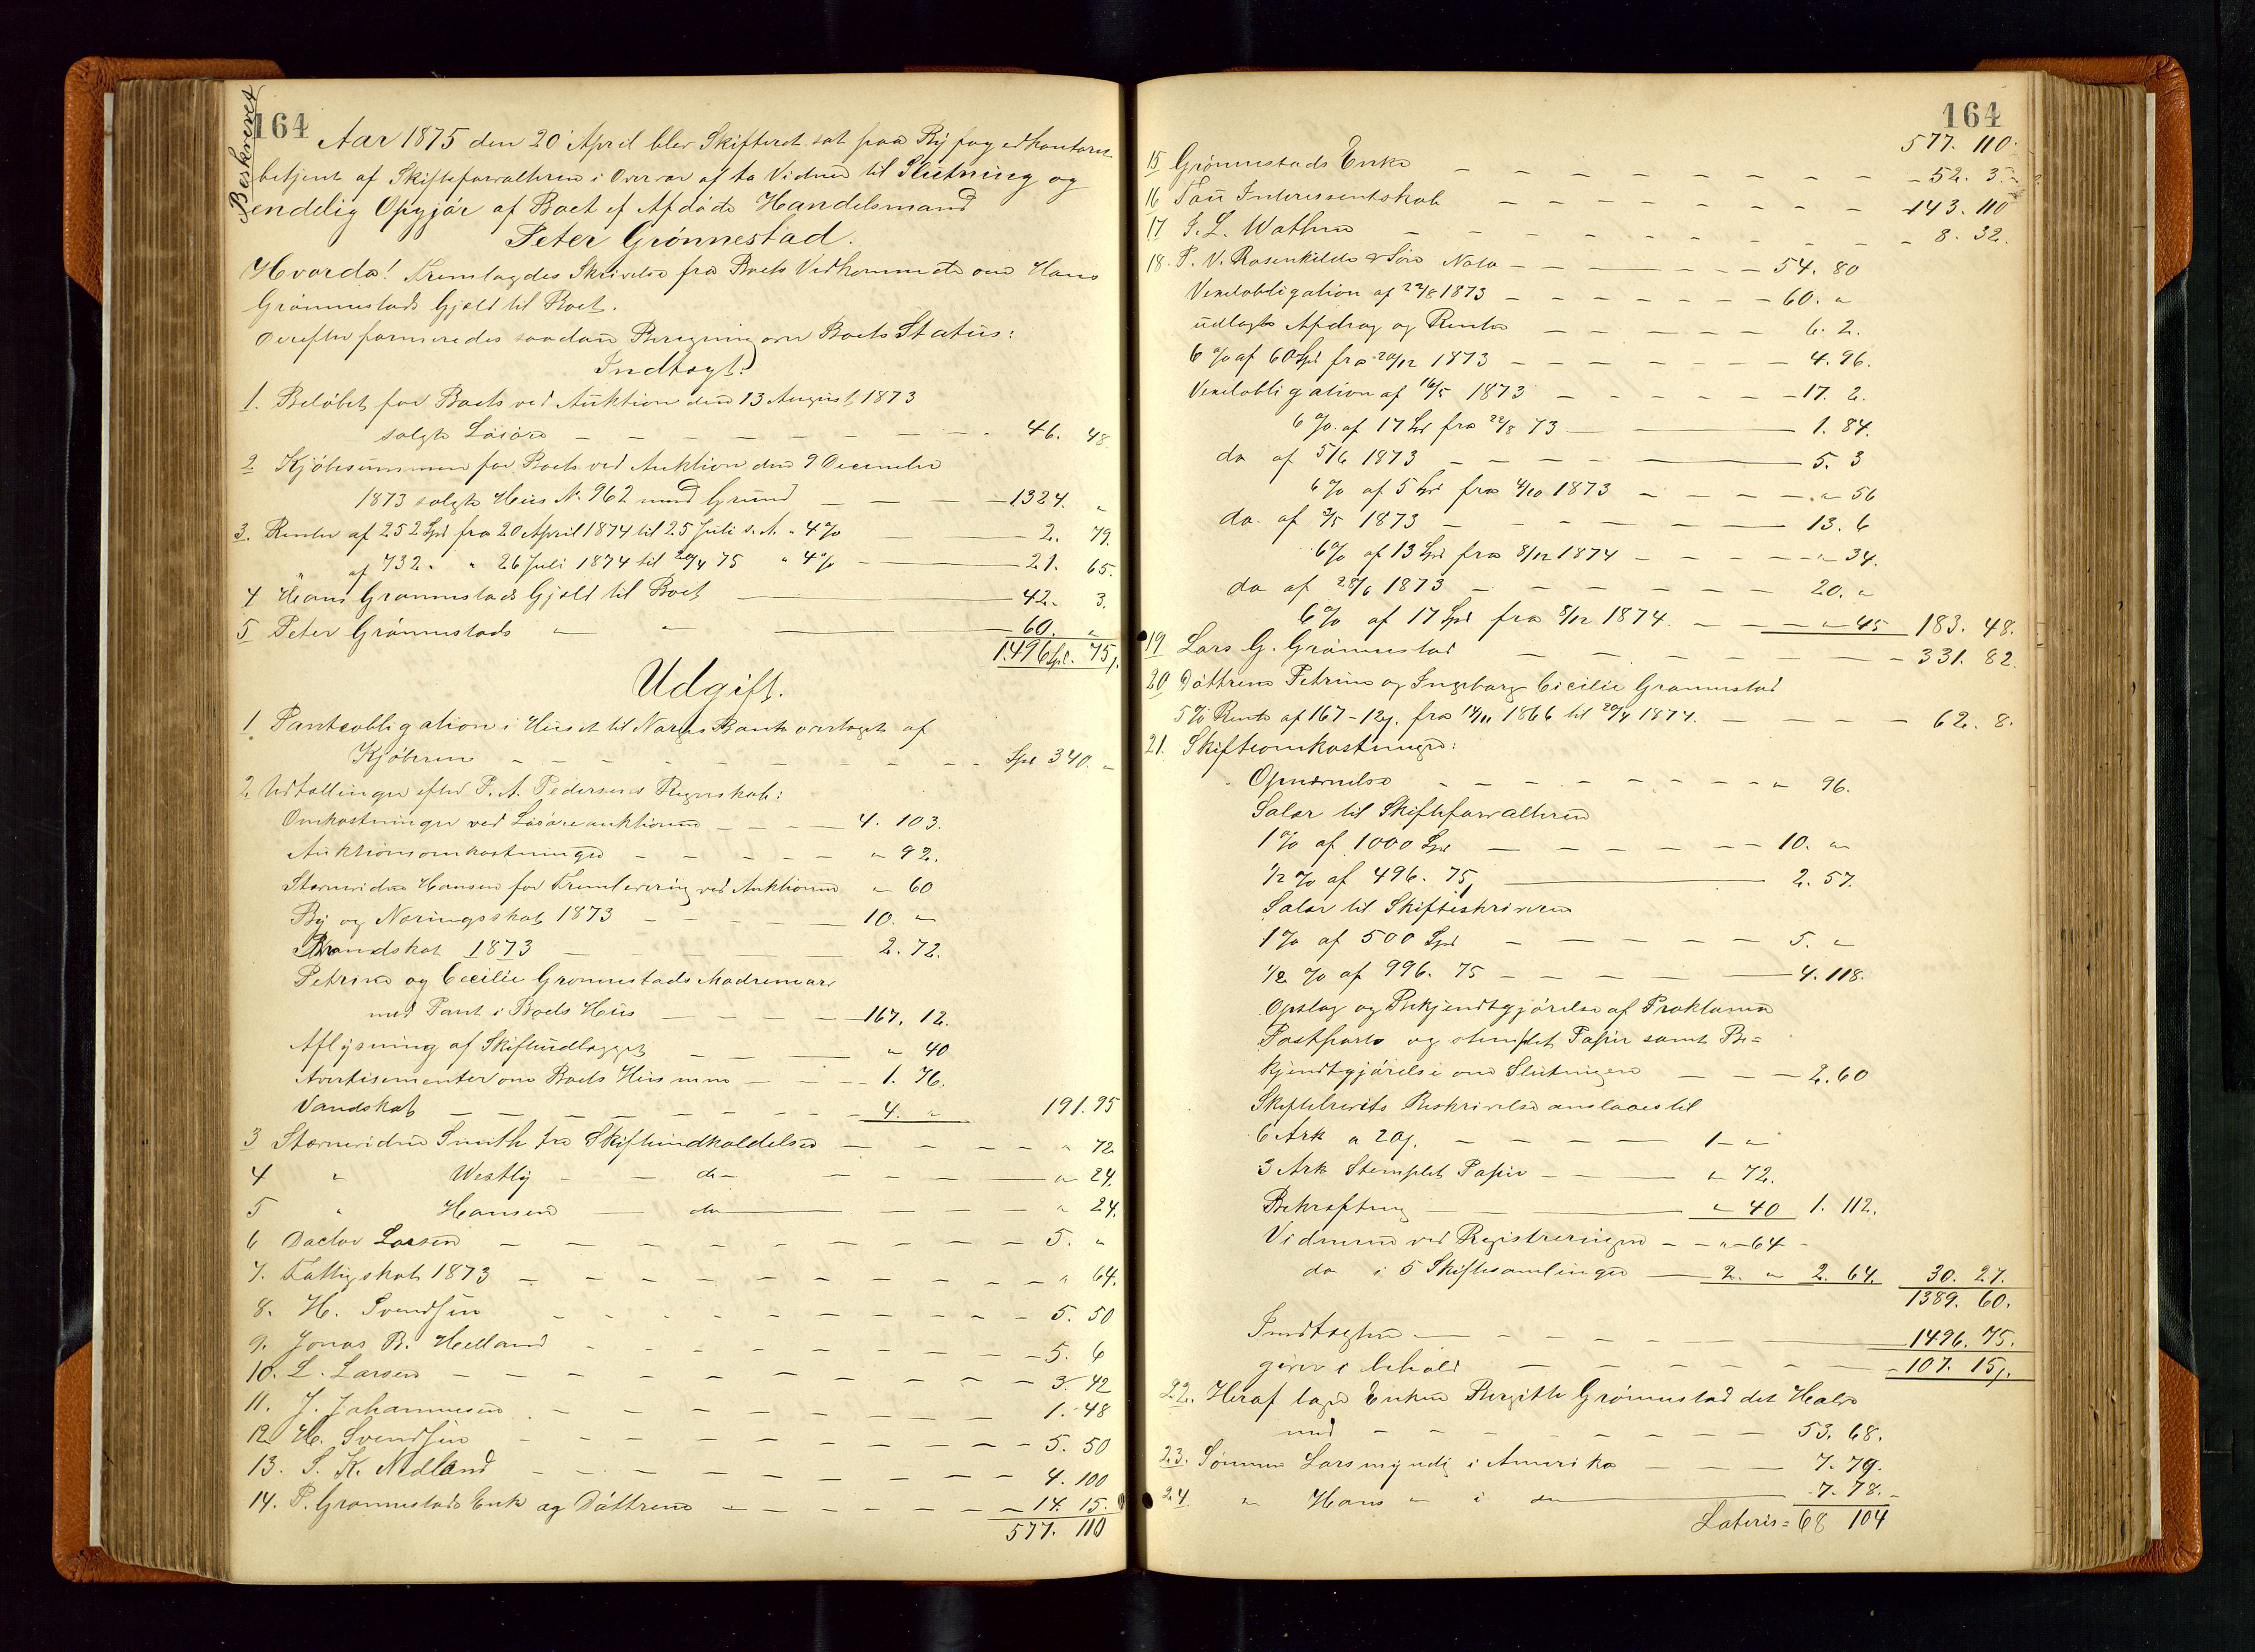 Beskrevet
164
Aar 1875 den 20 April blev Skifteret sat paa Byfogedkontoret
betjent af Skifteforvalteren i Overvær af to Vidner til Slutning og
endelig Opgjör af Boet ef Afdöde Handelsmand
Peter Grönnestad.
Hvorda! Fremlagdes Skrivelse fra Boets Vedkommende om Hans
Grönnestads Gjæld til Boet.
Derefter formeredes saadan Beregning over Boets Status:
Indtægt.
1. Belöbet for Boets ved Auktion den 13 August 1873
solgte Lösöre — 46. 48
2 Kjöbesummen for Boets ved Auktion den 9 December
1873 solgte Hus N. 962 med Grund — 1324. "
3. Renter af 252 Spd fra 20 April 1874 til 25 Juli s. A. a 4% — 2. 79.
" af 732 " " 26 Juli 1874 til 20/4 75 " 4% — 21. 65.
4 Hans Grønnestads Gjæld til Boet — 42. 3.
5 Peter Grönnestads " " — 60. "
1496 Spd. 75 ß.
Udgift.
1. Panteobligation i Huset til Norges Bank overtaget af
Kjöberen — Spd 340. "
2. Udtællinger efter P. A. Pedersens Regnskab:
Omkostninger ved Lösöreauktionen — 4. 103.
Auktionsomkostninger — " 92.
Stævnevidne Hansen for Fremlevering ved Auktionen " 60
By og Næringsskat 1873 — 10. "
Brandskat 1873 — 2. 72.
Petrine og Cecilie Grønnestads Mødrenearv
med Pant i Boets Hus — 167. 12.
Aflysning af Skifteudlægget — " 40
Avertisementer om Boets Hus m m — 1. 76.
Vandskat — 4. " 191. 95
3 Stævnevidne Smith fra Skifteindkaldelser — " 72
4 " Westly — do — " 24.
5 " Hansen — do — " 24.
6 Doctor Larsen — 5. "
7. Fattigskat 1873 — " 64.
8. H. Svendsen — 5. 50
9. Jonas B. Helland — 5. 6
10. L. Larsen — 3. 42
11. J. Johannesen — 1. 48
12. H. Svendsen — 5. 50
13. S. K. Nedland — 4. 100
14. P. Grønnestads Enke og Döttrene — 14. 15.
577. 110
164
577. 110.
15 Grönnestads Enke — 52. 3.
16 Tou Interessentskab — 143. 110
17 J. L. Wathne — 8. 32.
18. P. V. Rosenkilde & Sön Nota — 54. 80
Vexelobligation af 22/8 1873 — 60. "
udlagte Afdrag og Renter — 6. 2.
6 % af 60 Spd fra 20/12 1873 — 4. 96.
Vexelobligation af 16/5 1873 — 17. 2.
6 %. af 17 Spd fra 22/8 73 — 1. 84.
do af 5/6 1873 — 5. 3
6 % af 5 Spd fra 4/10 1873 — " 56
do. af 3/5 1873 — 13. 6
6 % af 13 Spd fra 8/12 1874 — " 34.
do af 28/6 1873 — 20. "
6 % af 17 Spd fra 8/12 1874. — " 45 183. 48.
19 Lars G. Grönnestad — 331. 82.
20 Döttrene Petrine og Ingeborg Cicilie Grønnestad
5 % Rente af 167 - 12 ß. fra 14/11 1866 til 20/4 1874. — 62. 8.
21. Skifteomkostninger:
Opnævnelse — " 96.
Salær til Skifteforvalteren
1 % af 1000 Spd — 10. "
1/2 % af 496. 75 ß — 2. 57.
Salær til Skifteskriveren
1 % af 500 Spd — 5. "
1/2 % af 996. 75 — 4. 118.
Opslag og Bekjendtgjörelse af Proklama
Postporto og stemplet Papir samt Be=
kjendtgjörelse om Slutningen — 2. 60
Skiftebrevets Beskrivelse anslaaes til
6 Ark a 20 ß. — 1 - "
3 Ark Stemplet Papir — " 72.
Bekræftning — " 40 1. 112.
Vidnerne ved Registreringen — " 64 -
do i 5 Skiftesamlinger — 2. " 2. 64. 30. 27.
1389. 60.
Indtægten — 1496. 75.
giver i behold — 107. 15 ß.
22. Heraf tager Enken Bergithe Grönnestad det Halve
med — 53. 68.
23. Sönnen Lars myndig i Amerika — 7. 79.
24 " Hans " i do — 7. 78.
Lateris = 68 104